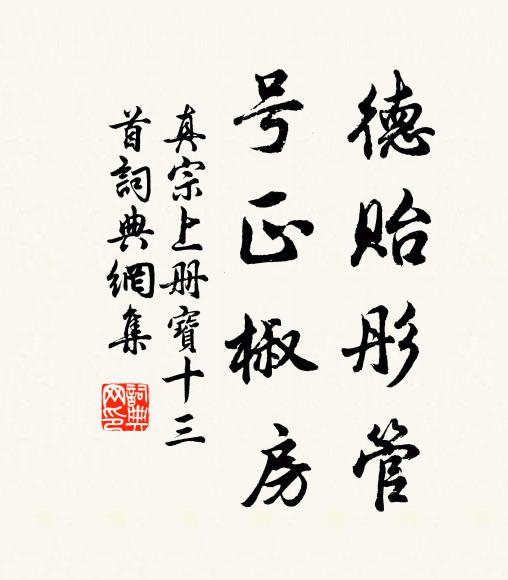 德贻彤管
号正椒房
真宗上册寶十三
首詞典網集
詞典
网印